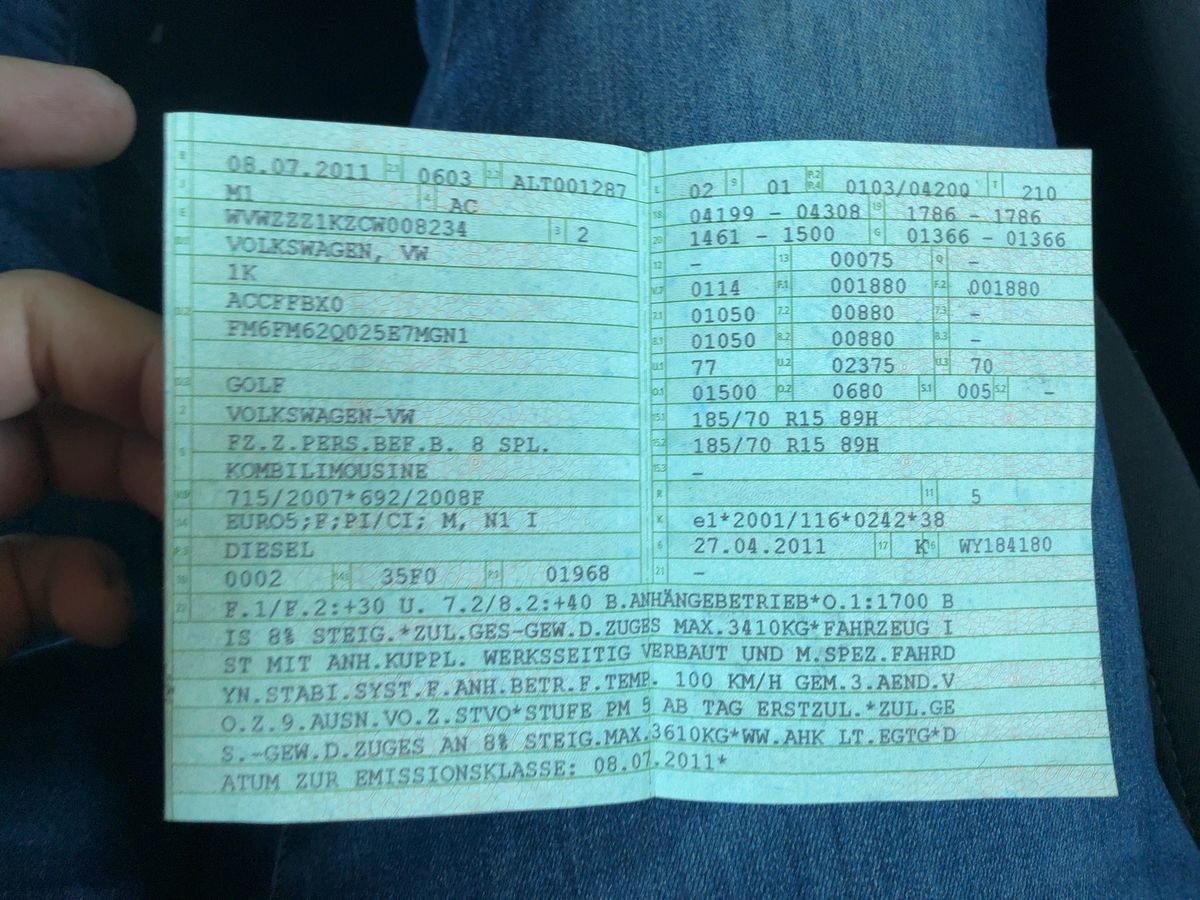 B 08.07.2011 2.1 0603 2.2 ALT001287
J M1 4 AC
E WVWZZZ1KZCW008234 3 2
D.1 VOLKSWAGEN, VW
1K
D.2 ACCFFBX0
FM6FM62Q025E7MGN1
D.3 GOLF
2 VOLKSWAGEN-VW
5 FZ.Z.PERS.BEF.B. 8 SPL.
KOMBILIMOUSINE
V.9 715/2007*692/2008F
14 EURO5;F;PI/CI; M, N1 I
P.3 DIESEL
10 0002 14.1 35F0 P.1 01968
L 02 9 01 P.2 P.4 0103/04200 T 210
18 04199 - 04308 19 1786 - 1786
20 1461 - 1500 G 01366 - 01366
12 - 13 00075 Q -
V.7 0114 F.1 001880 F.2 001880
7.1 01050 7.2 00880 7.3 -
8.1 01050 8.2 00880 8.3 -
U.1 77 U.2 02375 U.3 70
O.1 01500 O.2 0680 S.1 005 S.2 -
15.1 185/70 R15 89H
15.2 185/70 R15 89H
15.3 -
R 11 5
K e1*2001/116*0242*38
6 27.04.2011 17 K 16 WY184180
21 -
22 F.1/F.2:+30 U. 7.2/8.2:+40 B.ANHÄNGEBETRIEB*O.1:1700 B
IS 8% STEIG.*ZUL.GES-GEW.D.ZUGES MAX.3410KG*FAHRZEUG I
ST MIT ANH.KUPPL. WERKSSEITIG VERBAUT UND M.SPEZ.FAHRD
YN.STABI.SYST.F.ANH.BETR.F.TEMP. 100 KM/H GEM.3.AEND.V
O.Z.9.AUSN.VO.Z.STVO*STUFE PM 5 AB TAG ERSTZUL.*ZUL.GE
S.-GEW.D.ZUGES AN 8% STEIG.MAX.3610KG*WW.AHK LT.EGTG*D
ATUM ZUR EMISSIONSKLASSE: 08.07.2011*